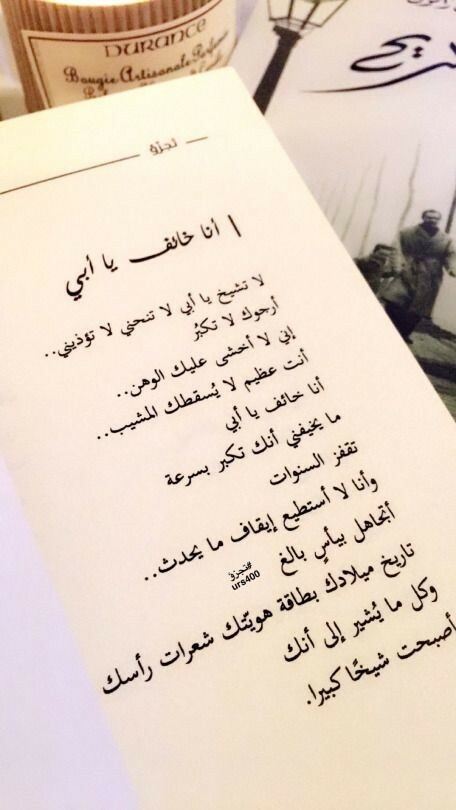 DURANCE
Bougie Artisanale Parfumée
تجرّؤ
أنا خائف يا أبي
لا تشيخ يا أبي لا تنحني لا تؤذيني..
أرجوك لا تكبُر
إني لا أخشى عليك الوهن..
أنت عظيم لا يُسقطك المشيب..
أنا خائف يا أبي
ما يخيفني أنك تكبر بسرعة
تقفز السنوات
وأنا لا أستطيع إيقاف ما يحدث..
أتجاهل بيأسٍ بالغ
#تجرّؤ
urs400
تاريخ ميلادك بطاقة هويّتك شعرات رأسك
وكل ما يُشير إلى أنك
أصبحت شيخًا كبيرا.